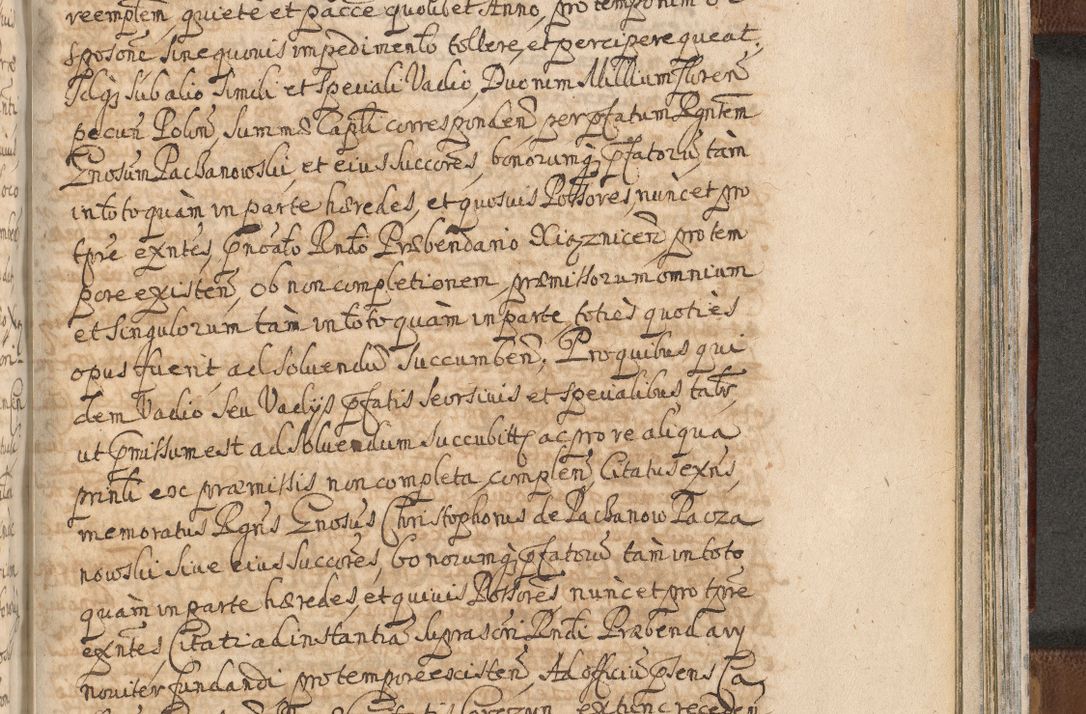 reemplem̃, quiete et pacce quolibet Anno, pro temporum
sposoñe sine quouis impedimento tollere, et percipere queat.
Idq̃ sub alio simili et speciali Vadio, Duorum Millium Floreñ
pecuñ Poloñ, summæ Capli corresponden̄, per p̃fatum Rgntem
Gnosum Pacbanowski, et eius succores, bonorumq̃ p̃fatorū, tam
in toto quàm in parte hæredes, et quosuis Possores, nunc et pro
tpre exntes, p̃noãto Rndo Præbendario Xiąznicen̄, pro tem
pore existen̄, ob non completionem, præmissorum omnium
et singulorum tàm in toto quàm in parte, toties quoties
opus fuerit, ad soluendū succumben̄; Pro quibus qui
dem Vadio, seu Vadijs p̃fatis seorsiuis et specialibus talr̄,
ut p̃missum est ad soluendum succubitt, ac pro re aliqua
prinli exc præmissis non completa, complen̄, Citatus exns,
memoratus Rgns Gnosus Christophorus de Pacbanow Pacza
nowski siue eius succores, bonorumq̃ p̃fatorū tàm in toto
quàm in parte hæredes, et quiuis Possores, nunc et pro tpre
exntes, Citati ad instantiā suprascri Rndi Præbendarij
nouiter fundandi pro tempore existen̄, Ad officiū p̃sens Ca